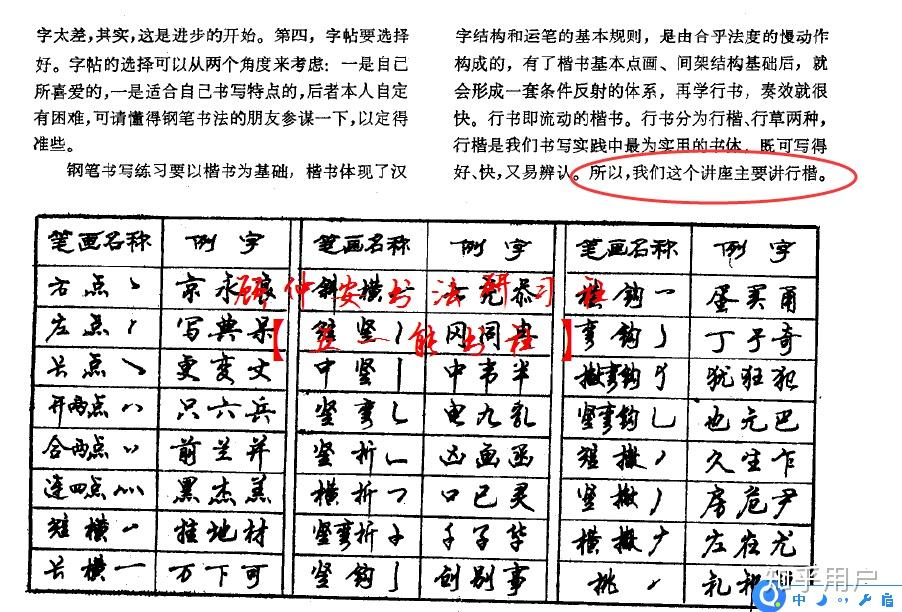 字太差,其实,这是进步的开始。第四,字帖要选择
好。字帖的选择可以从两个角度来考虑：一是自己
所喜爱的,一是适合自己书写特点的,后者本人自定
有困难,可请懂得钢笔书法的朋友参谋一下,以定得
准些。
钢笔书写练习要以楷书为基础，楷书体现了汉
字结构和运笔的基本规则，是由合乎法度的慢动作
构成的，有了楷书基本点画、间架结构基础后，就
会形成一套条件反射的体系，再学行书，奏效就很
快。行书即流动的楷书。行书分为行楷、行草两种，
行楷是我们书写实践中最为实用的书体，既可写得
好、快,又易辨认。所以,我们这个讲座主要讲行楷。
笔画名称 例字 笔画名称 例字 笔画名称 例字
右点 京永 斜横 恭 横钩 蛋买甬
顾仲安书法研习社
左点 写典呆 短竖 网同 弯钩 丁于奇
长点 更变丈 中竖 中韦半 撇弯钩 犹狂犯
开两点 只六兵 竖弯 电九乱 竖弯钩 也元巴
合两点 前兰并 竖折 凶画函 短撇 久生乍
连四点 黑杰羔 横折 口已灵 竖撇 房危尹
短横 挂地材 竖弯折 横撇 左在尤
长横 万下可 竖钩 创别事 挑 札
知乎用户
中